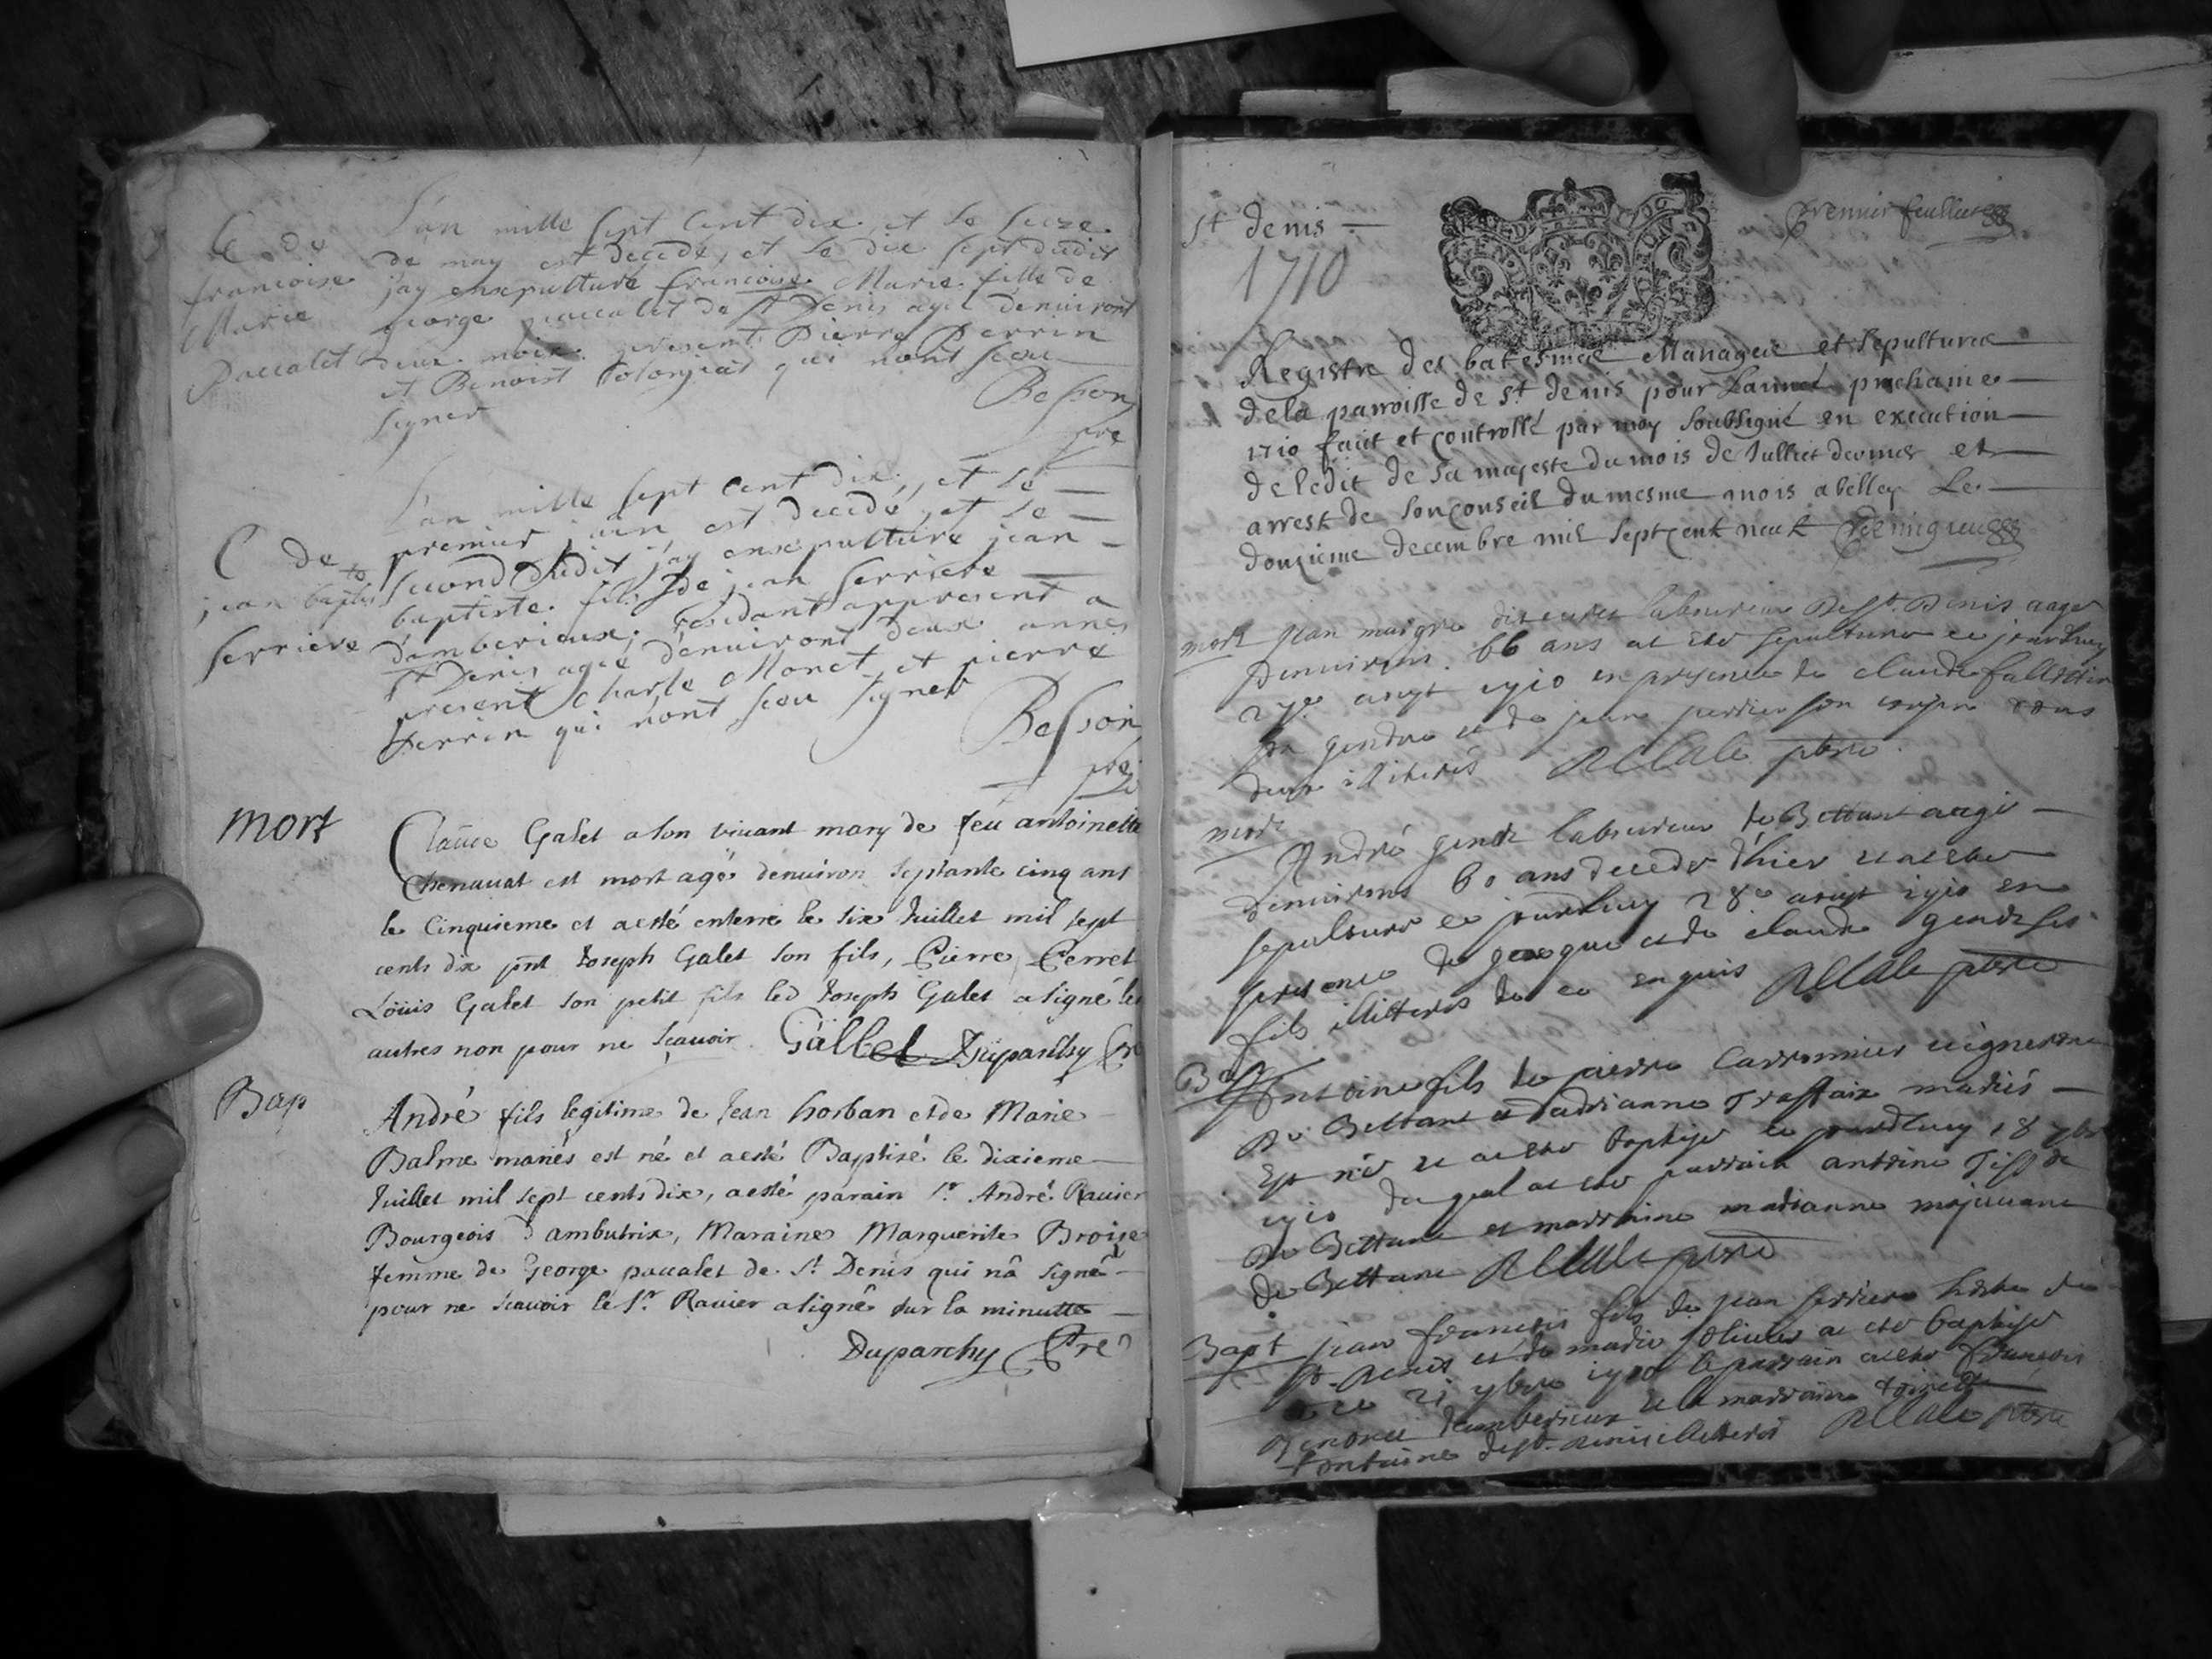 L'an mille sept cent dix, et le seize
de may est decedé, et le dix sept dudit
j'ay ensepulturé francoise Marie fille de
george paccalet de St Denis agée denuiront
deux mois present Pierre Perrin
et Benoist qui n'ont sceu
signer
Besson
pre
C de
francoise
Marie
Paccalet
L'an mille sept cent dix, et le
premier juin est decedé, et le
second dudit j'ay ensepulturé jean
baptiste fils de jean serriere
d'amberieux, residant appresent a
St Denis agée denuiront deux annes
present Charle Monet et pierre
Perrin qui n'ont sceu signer
Besson
pre
C de
jean baptiste
serriere
mort
Claûce Galet a son viuant mary de feu antoinette
Chenauat est mort agé denuiron septante cinq ans
le Cinquieme et aesté enterré le six Juillet mil sept
cents dix pnt Joseph Galet son fils, Pierre Perret
Loüis Galet son petit fils led Joseph Galet a signé les
autres non pour ne scauoir Gället Duparchy Pre
Bap
André fils legitime de Jean horban et de Marie
Balme mariés est né et aesté Baptisé le dixieme
Juillet mil sept cents dix, aesté parain Sr André Rauier
Bourgeois d'ambutrix, Maraine Marguerite Broise
femme de George paccalet de St Denis qui nâ signé
pour ne scauoir le Sr Rauier a signé sur la minutte
Duparchy Pre
St denis
1710
Premier feulliet
Registre des batesmes Mariages et Sepultures
de la parroisse de St denis pour Lannée prochaine
1710 fait et controllé par moy soubsigné en execution
de ledit de sa majesté du mois de Julliet dernier et
arrest de son conseil du mesme mois a belley Le
douzieme decembre mil sept cent neuf
mort jean maigre laboureur de St. Denis aagé
denuirons 66 ans a esté sepulturé ce jourdhuy
27e aoust 1710 en presence de claude
son gendre et de jean perrier son tous
deux illiterés pbre
mort
André gendr laboureur de Bettant aagé
denuirons 60 ans decedé d'hier et a esté
sepulturé ce jourdhuy 28e aoust 1710 en
presence de george et de claude gendr ses
fils illitterés de ce enquis pbre
Bapt
Antoine fils de pierre Carronnier uigneron
de Bettant et d'adrianne mariés
est né et a esté baptisé ce jourdhuy 18 7bre
1710 duquel a esté parrain antoine
de Bettant et marraine marianne
de Bettant pbre
Bapt jean francois fils de jean serriere hoste de
St. denis et de marie a esté baptisé
ce 21 7bre 1710 le parrain a esté francois
d'amberieux et la marraine
fontaine de St. denis illiterés pbre